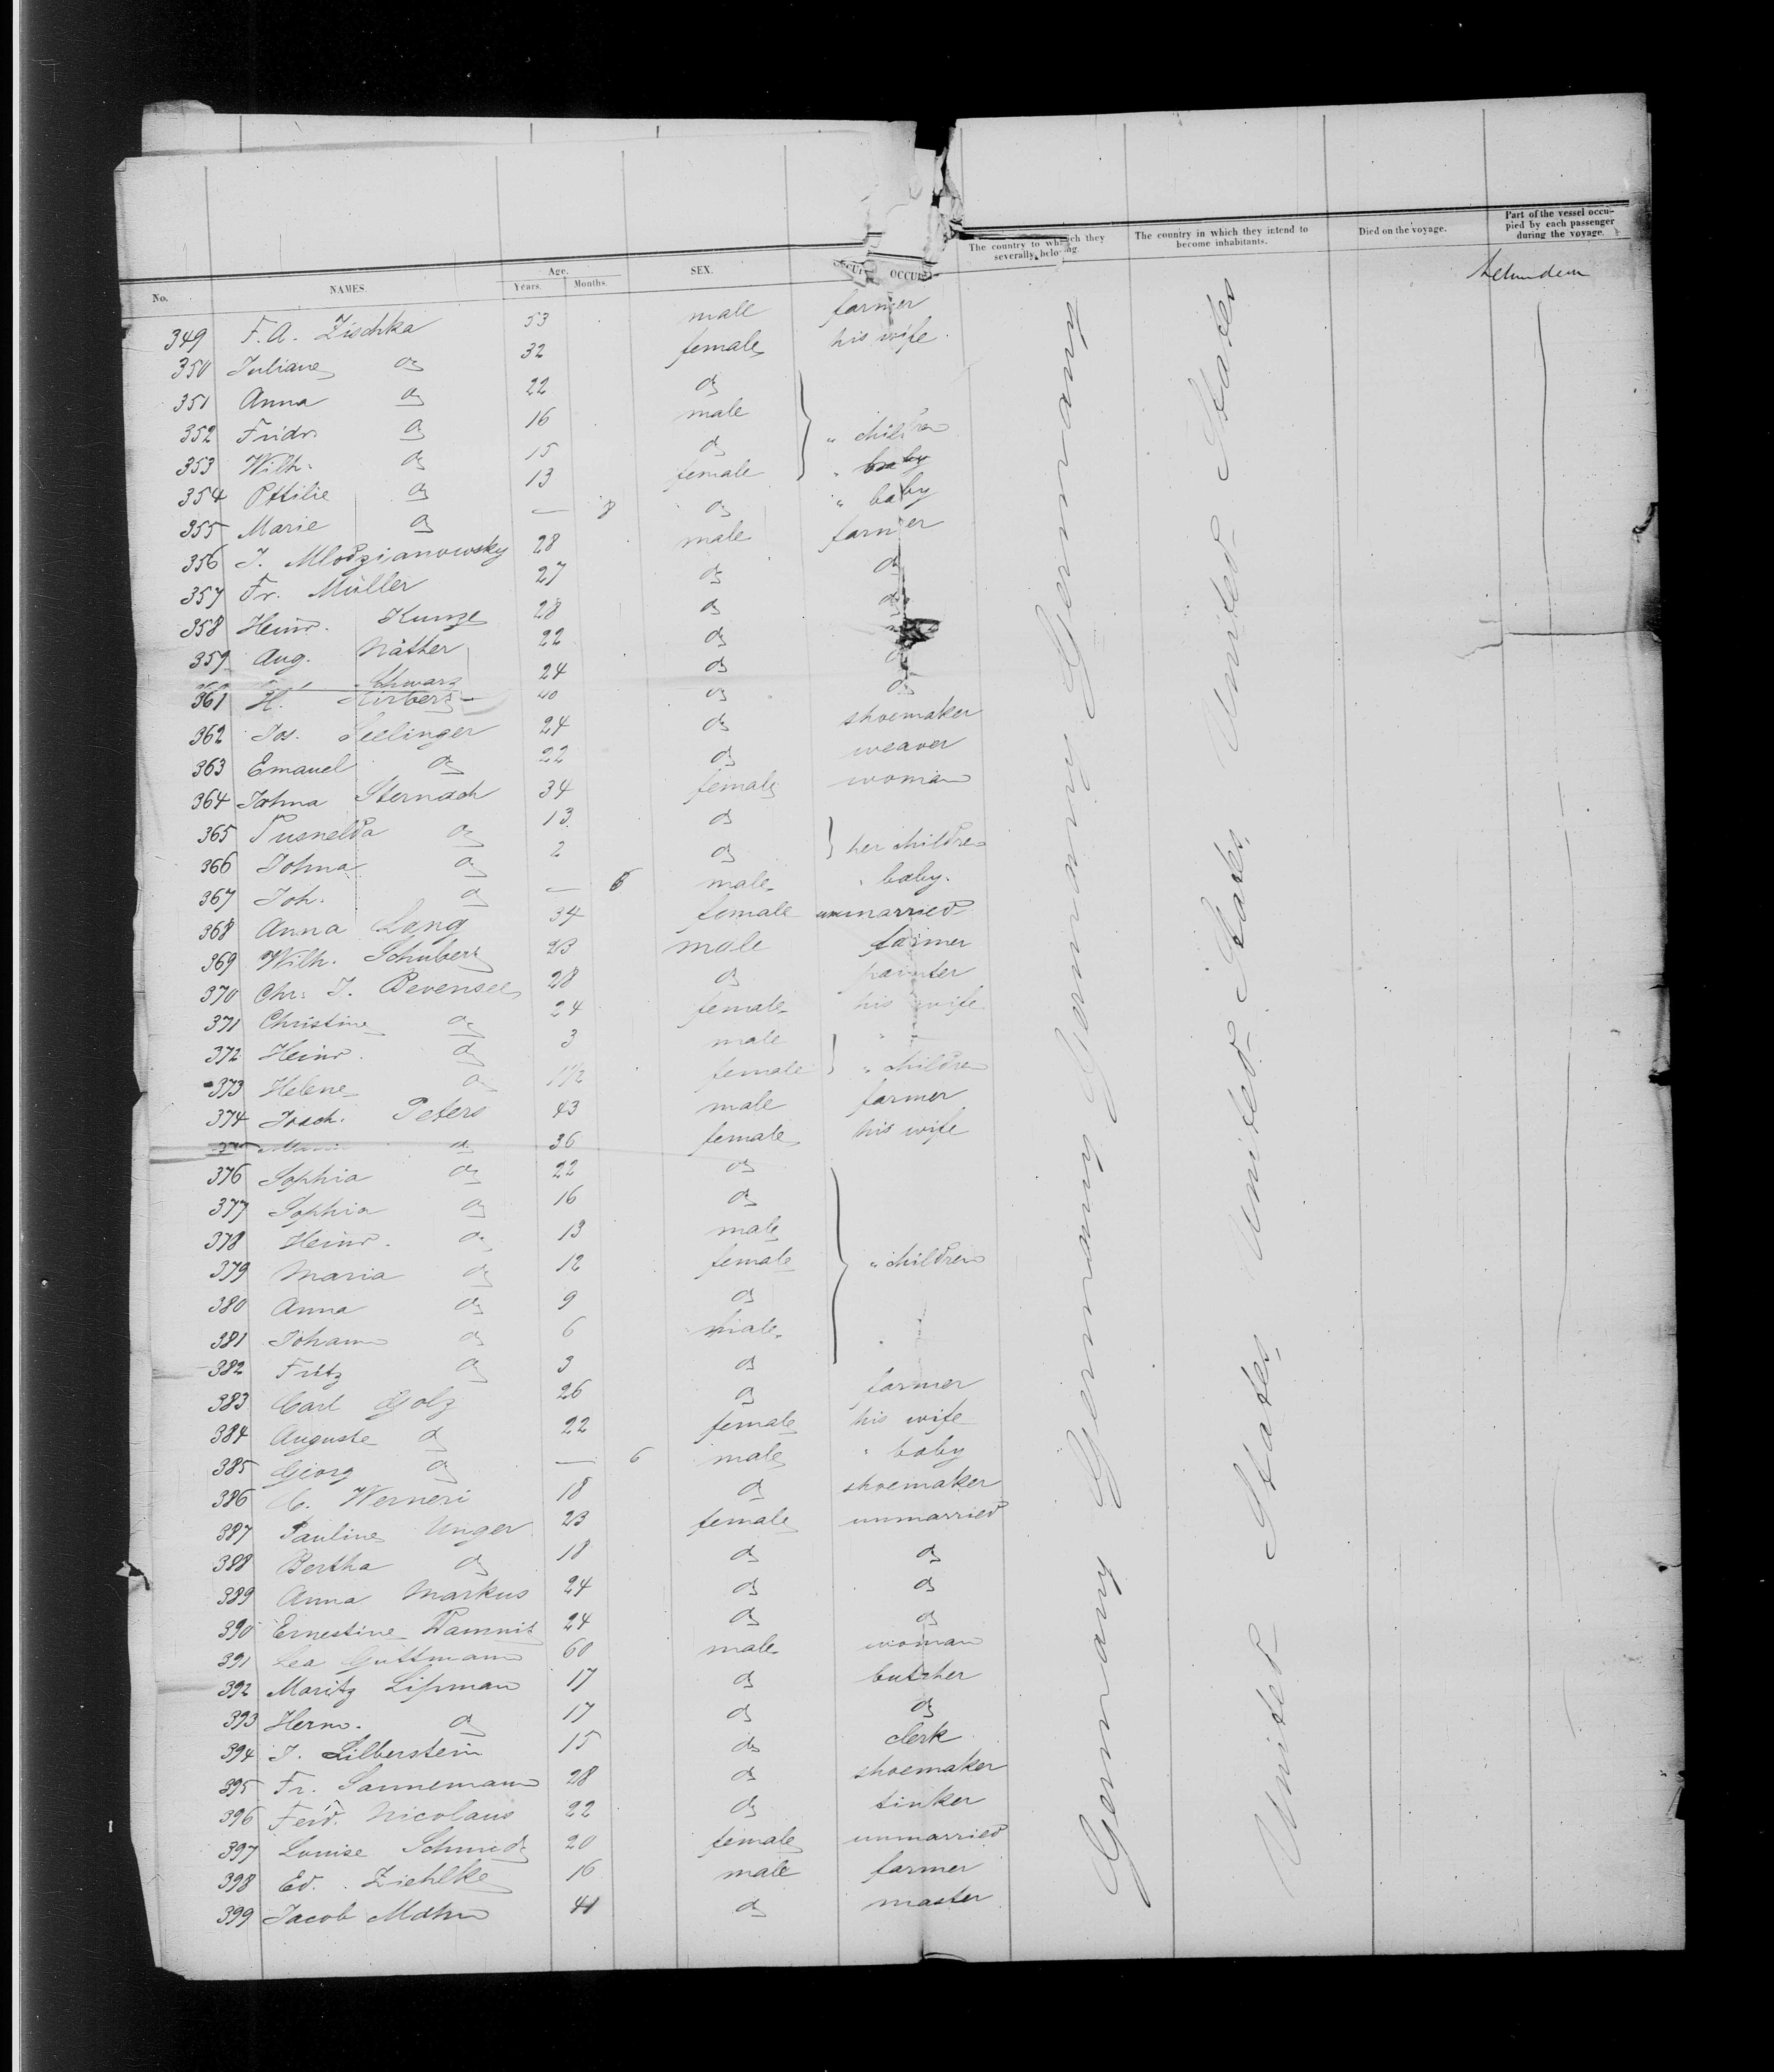 No. NAMES. Age. Years. Months. SEX. OCCU OCCU The country to which they severally belong. The country in which they intend to become inhabitants. Died on the voyage. Part of the vessel occupied by each passenger during the voyage.
349 F. A. Zischka 53 male farmer
350 Juliane do 32 female his wife
351 Anna do 22 do
352 Fridr. do 16 male
353 Wilh. do 15 do " children
354 Ottilie do 13 female " baby
355 Marie do — 8 do " baby
356 J. Mlodzianowsky 28 male farmer
357 Fr. Müller 27 do do
358 Heinr. Kunze 28 do do
359 Aug. Näther 22 do
Schwarz 24 do do
361 H. 40 do do
362 Jos. Seelinger 24 do shoemaker
363 Emanuel do 22 do weaver
364 Johna Sternadh 34 female woman
365 Tusnelda do 13 do
366 Johna do 2 do her children
367 Joh. do — 6 male " baby.
368 Anna Lang 34 female unmarried
369 Wilh. Schubert 23 male farmer
370 Chr. J. Bevensee 28 do painter
371 Christine do 24 female his wife
372 Heinr. do 3 male "
373 Helene do 1 1/2 female " children
374 Joach. Peters 43 male farmer
375 do 36 female his wife
376 Sophia do 22 do
377 Sophia do 16 do
378 Heinr. do 13 male
379 Maria do 12 female " children
380 Anna do 9 do
381 Johann do 6 male
382 Fritz do 3 do
383 Carl Golz 26 do farmer
384 Auguste do 22 female his wife
385 Georg do — 6 male " baby
386 C. Werneri 18 do shoemaker
387 Pauline Unger 23 female unmarried
388 Bertha do 18 do do
389 Anna Markus 24 do do
390 Ernestine 24 do do
391 Lea Guttmann 60 male woman
392 Moritz Lipman 17 do butcher
393 Herm. do 17 do do
394 J. Silberstein 15 do clerk
395 Fr. Sannemann 28 do shoemaker
396 Ferd. Nicolaus 22 do tinker
397 Louise Schmidt 20 female unmarried
398 Ed. Ziehlke 16 male farmer
399 Jacob 41 do master
Germany Germany Germany Germany Germany
United States United States United States